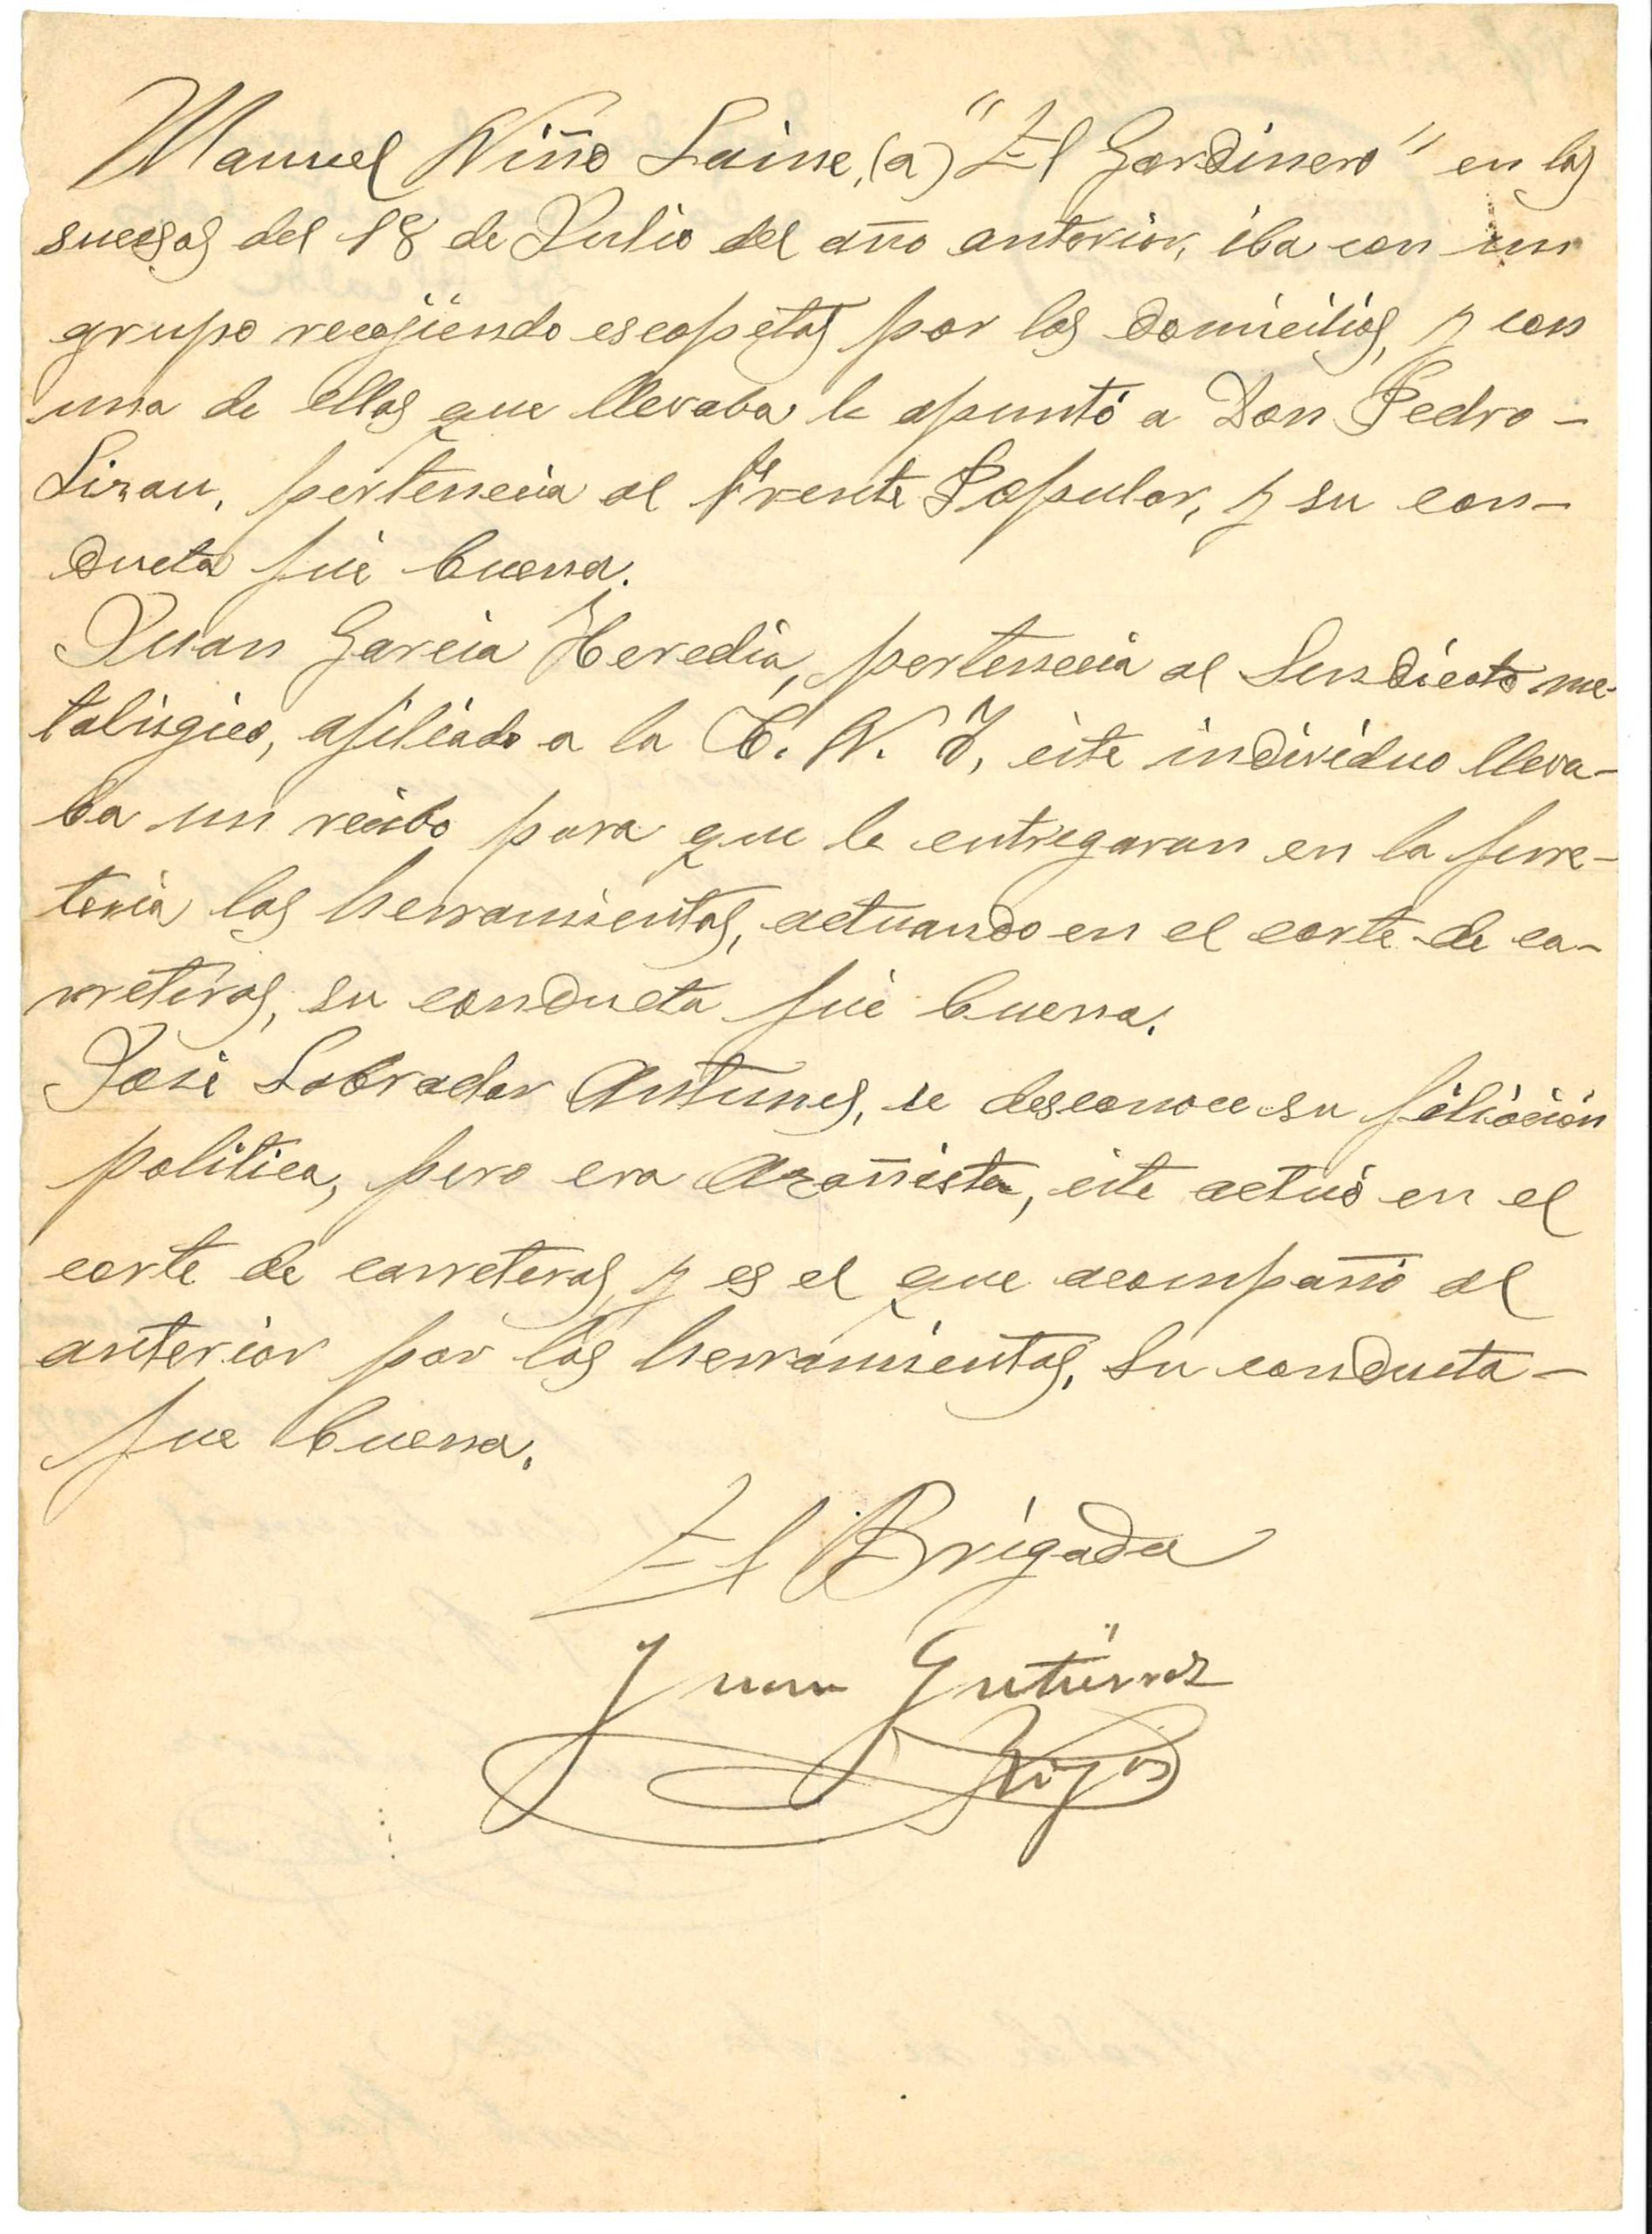 Manuel Niño Laine, (a) "El Gardinero" en los
sucesos del 18 de Julio del año anterior, iba con un
grupo recojiendo escopetas por los domicilios, y con
una de ellas que llevaba le apuntó a Don Pedro -
Lizau, pertenecia al Frente Popular, y su con-
ducta fué buena.
Juan Garcia Heredia, pertenecia al Sindicato me-
talúrgico, afiliado a la C. N. T, éste individuo lleva-
ba un recibo para que le entregaran en la ferre-
teria las herramientas, actuando en el corte de ca-
rreteras, su conducta fué buena.
José Labrador Antunes, se desconoce su filiación
politica, pero era Azañista, éste actuó en el
corte de carreteras, y es el que acompañó al
anterior por las herramientas, su conducta -
fue buena.
El Brigada
Juan Gutiérrez